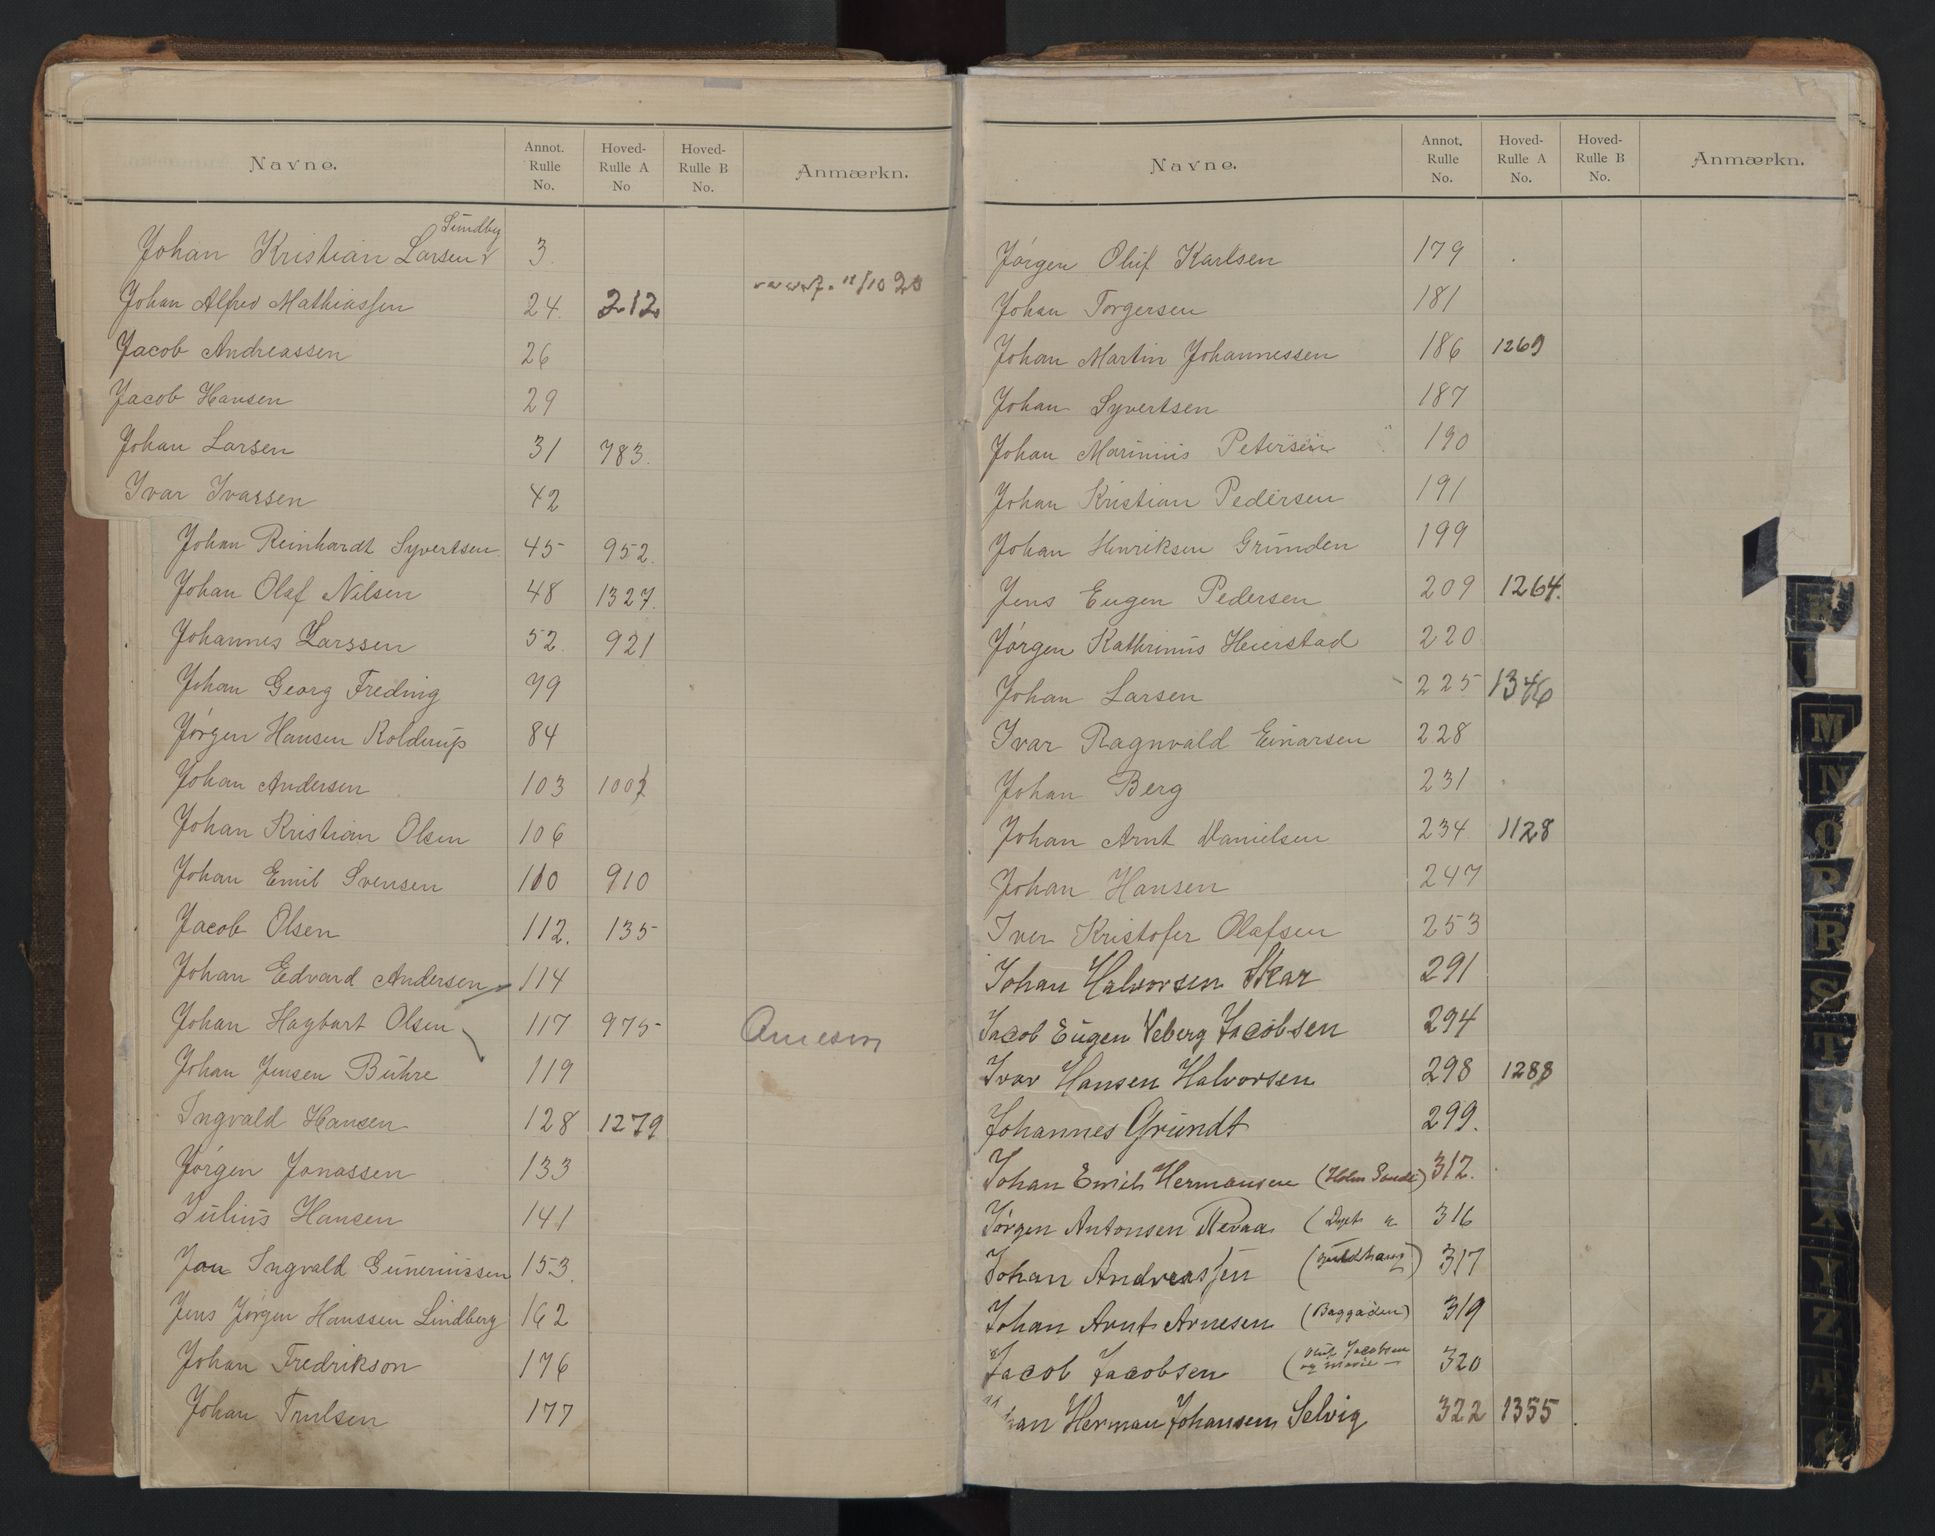 Navne. Annot. Rulle No. Hoved-Rulle A No Hoved-Rulle B No. Anmærkn.
Sundby
Johan Kristian Larsen 3.
Johan Alfred Mathiassen 24. 212
Jacob Andreassen 26
Jacob Hansen 29
Johan Larsen 31 783.
Ivar Ivarsen 42
Johan Reinhardt Syvertsen 45 952.
Johan Olaf Nilsen 48 1327.
Johannes Larssen 52. 921
Johan Georg Freding 79
Jørgen Hansen Kolderup 84
Johan Andersen 103 1002
Johan Kristian Olsen 106
Johan Emil Svensen 110 910
Jacob Olsen 112. 135
Johan Edvard Andersen 114
Johan Hagbart Olsen 117 975
Johan Jensen Bühre 119
Ingvald Hansen 128 1279
Jørgen Jonassen 133
Julius Hansen 141
Jon Ingvald Guneriussen 153.
Jens Jørgen Hanssen Lindberg 162
Johan Fredrikson 176
Johan Trulsen 177
Navne. Annot. Rulle No. Hoved-Rulle A No. Hoved-Rulle B No. Anmærkn.
Jørgen Oluf Karlsen 179
Johan Torgersen 181
Johan Martin Johannessen 186 1269
Johan Syvertsen 187
Johan Marinius Petersen 190
Johan Kristian Pedersen 191
Johan Henriksen Grunden 199
Jens Eugen Pedersen 209 1264.
Jørgen Kathrinus Heierstad 220
Johan Larsen 225 1346
Ivar Ragnvald Einarsen 228
Johan Berg 231
Johan Arnt Danielsen 234 1128
Johan Hansen 247
Iver Kristofer Olafsen 253
Johan Halvorsen Skar 291
Jacob Eugen Veberg Jacobsen 294
Ivar Hansen Halvorsen 298 1288
Johannes Grundt 299.
Johan Emil Hermansen (Holm 312.
Jørgen Antonsen Revaa 316
Johan Andreassen 317
Johan Arnt Arnesen (Baggaden) 319
Jacob Jacobsen (Oluf Jacobsen og Marie — 320
Herman Johansen Selvig 322 1355
K
L
M
N
O
P
R
S
T
U
W
X
Y
Z
Æ
Ø